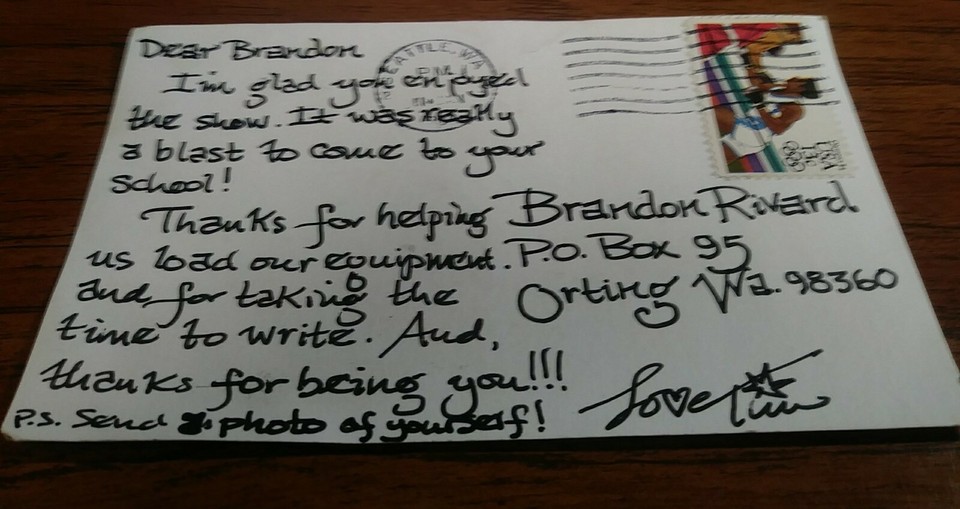 Dear Brandon
I'm glad you enjoyed
the show. It was really
a blast to come to your
school!
Thanks for helping
us load our equipment.
and, for taking the
time to write. And,
thanks for being you!!!
P.S. Send a photo of yourself!
Brandon Rivard
P.O. Box 95
Orting Wa. 98360
Love
ATTLE, WA